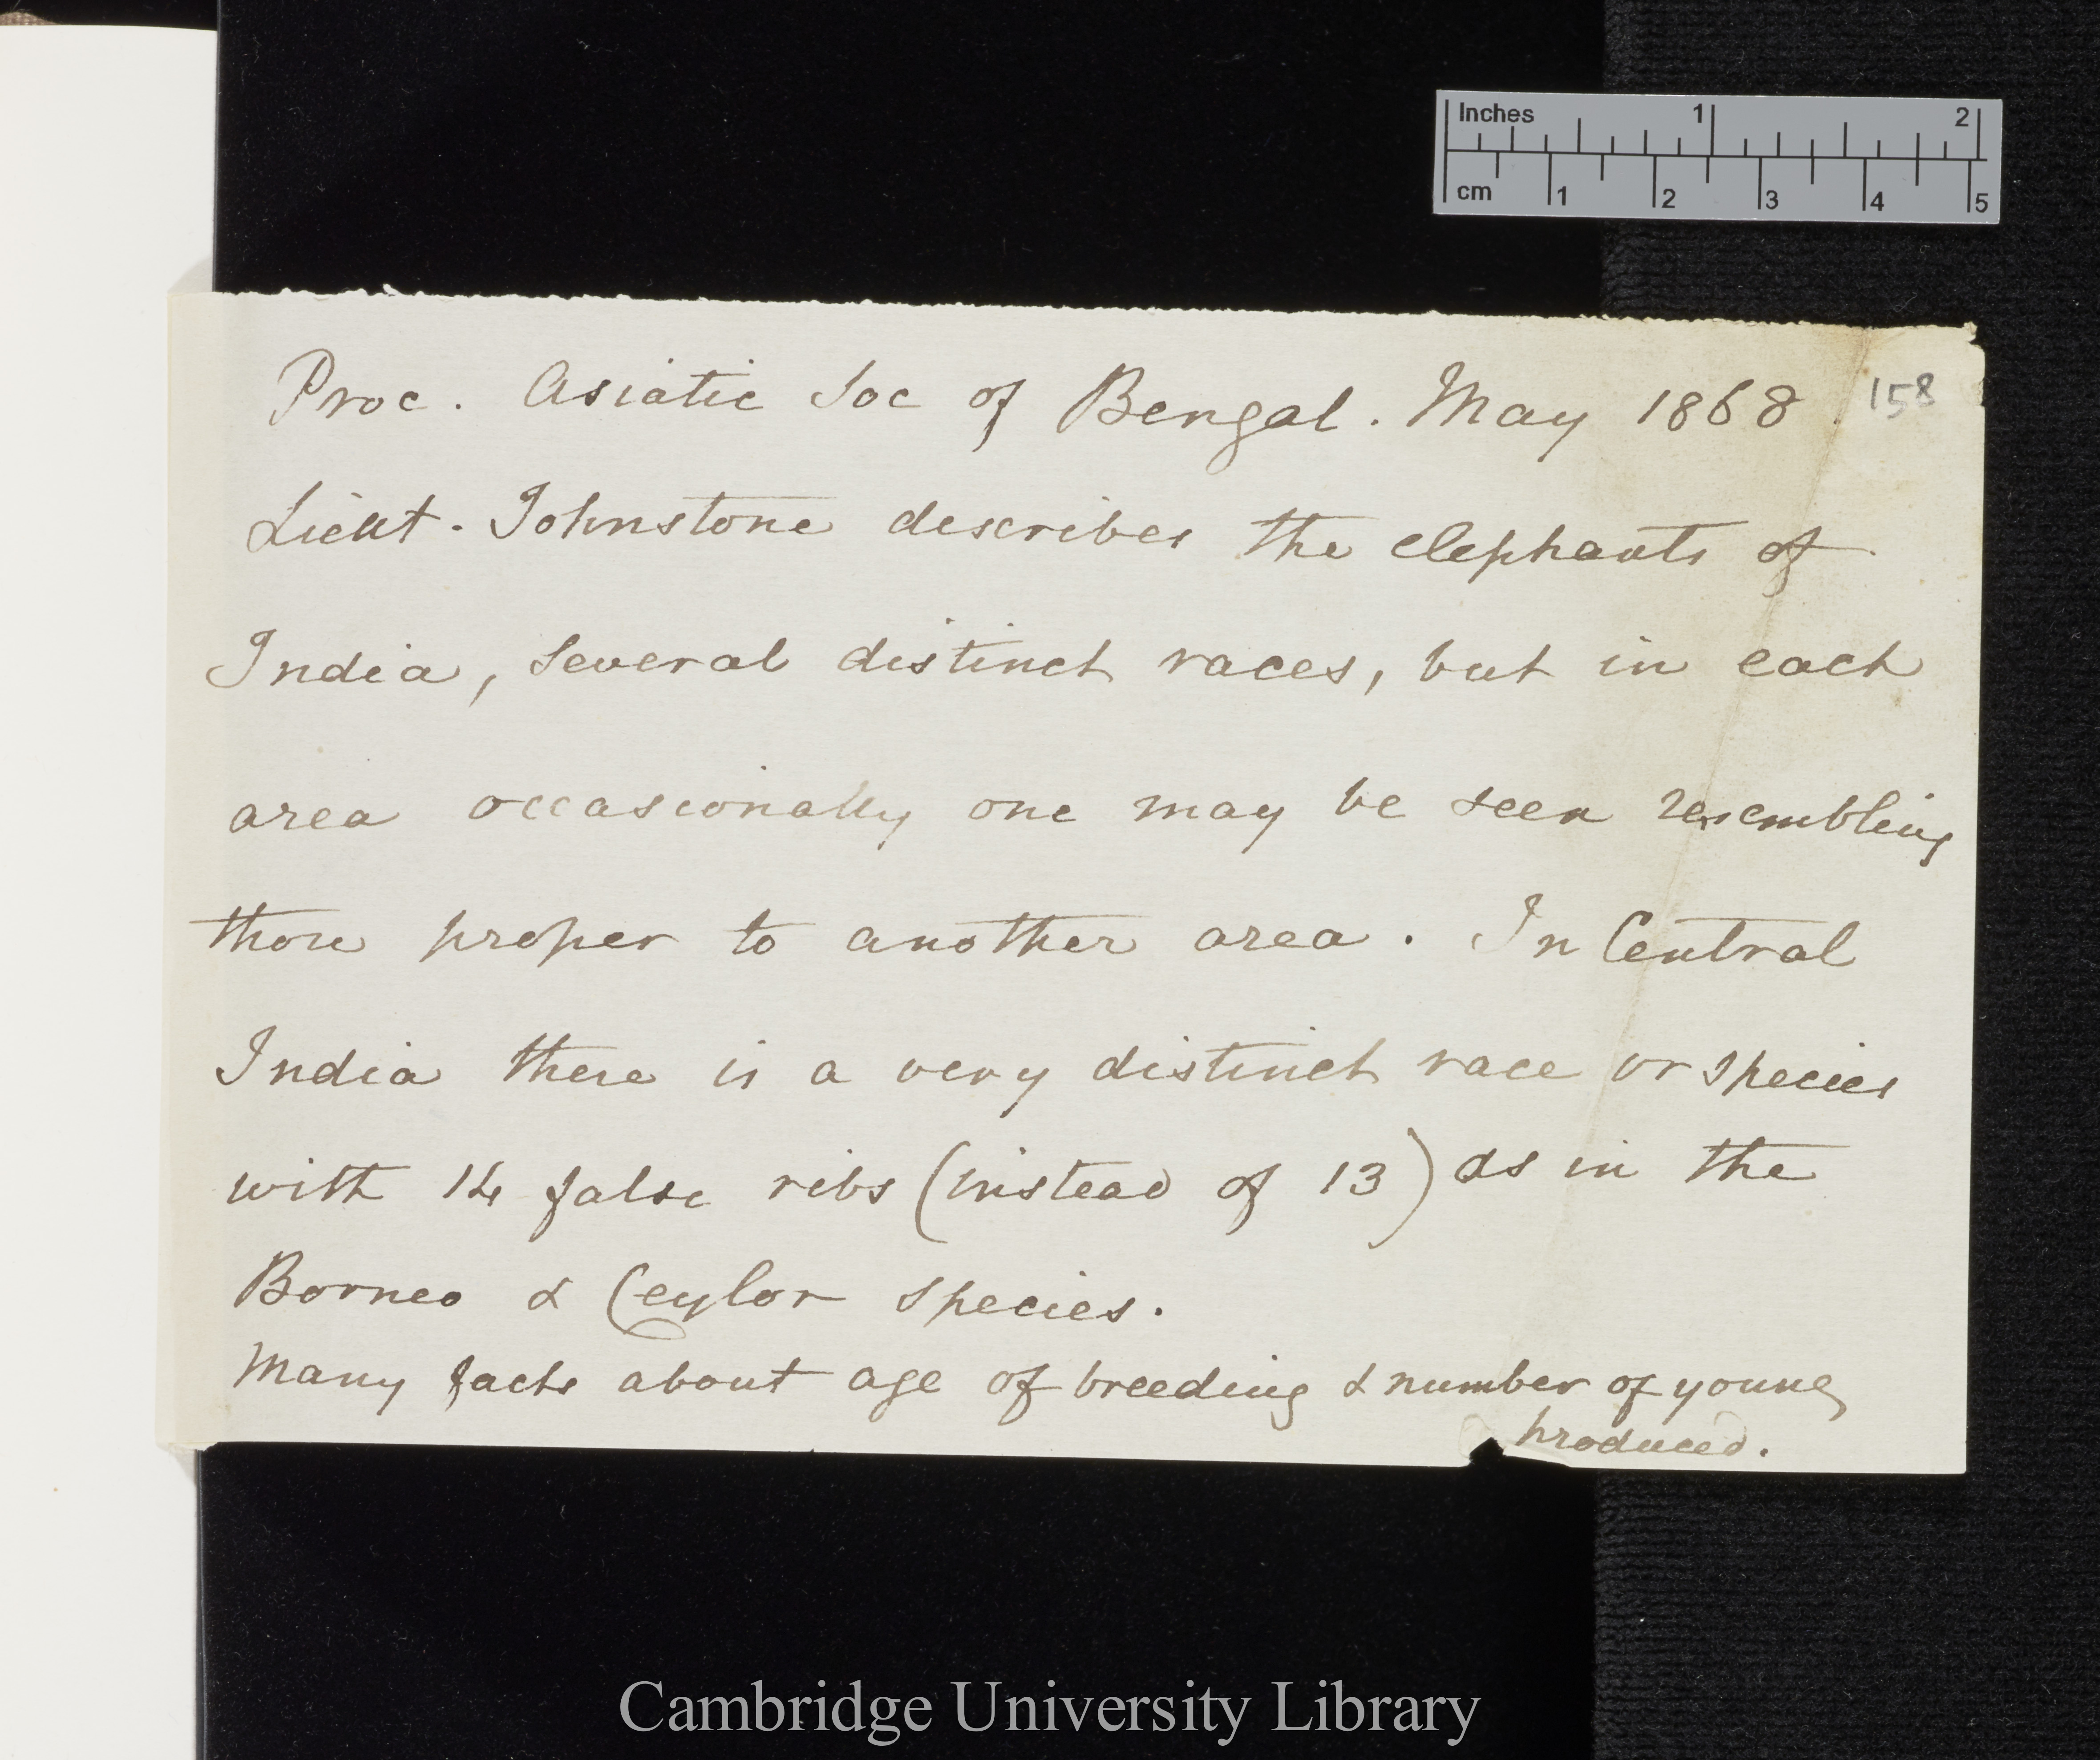 Inches 1 2
cm 1 2 3 4 5
Proc. Asiatic Soc of Bengal. May 1868. 158
Lieut. Johnstone describes the elephants of
India, several distinct races, but in each
area occasionally one may be seen resembling
those proper to another area. In Central
India there is a very distinct race or species
with 14 false ribs (instead of 13) as in the
Borneo & Ceylon species.
Many facts about age of breeding & number of young
produced.
Cambridge University Library